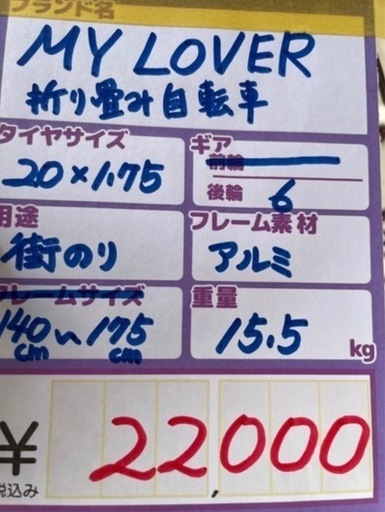 ブランド名
MY LOVER
折り畳み自転車
タイヤサイズ
20×1.75
ギア
前輪
後輪 6
用途
街のり
フレーム素材
アルミ
フレームサイズ
140cm〜175cm
重量
15.5 kg
¥ 22,000
税込み